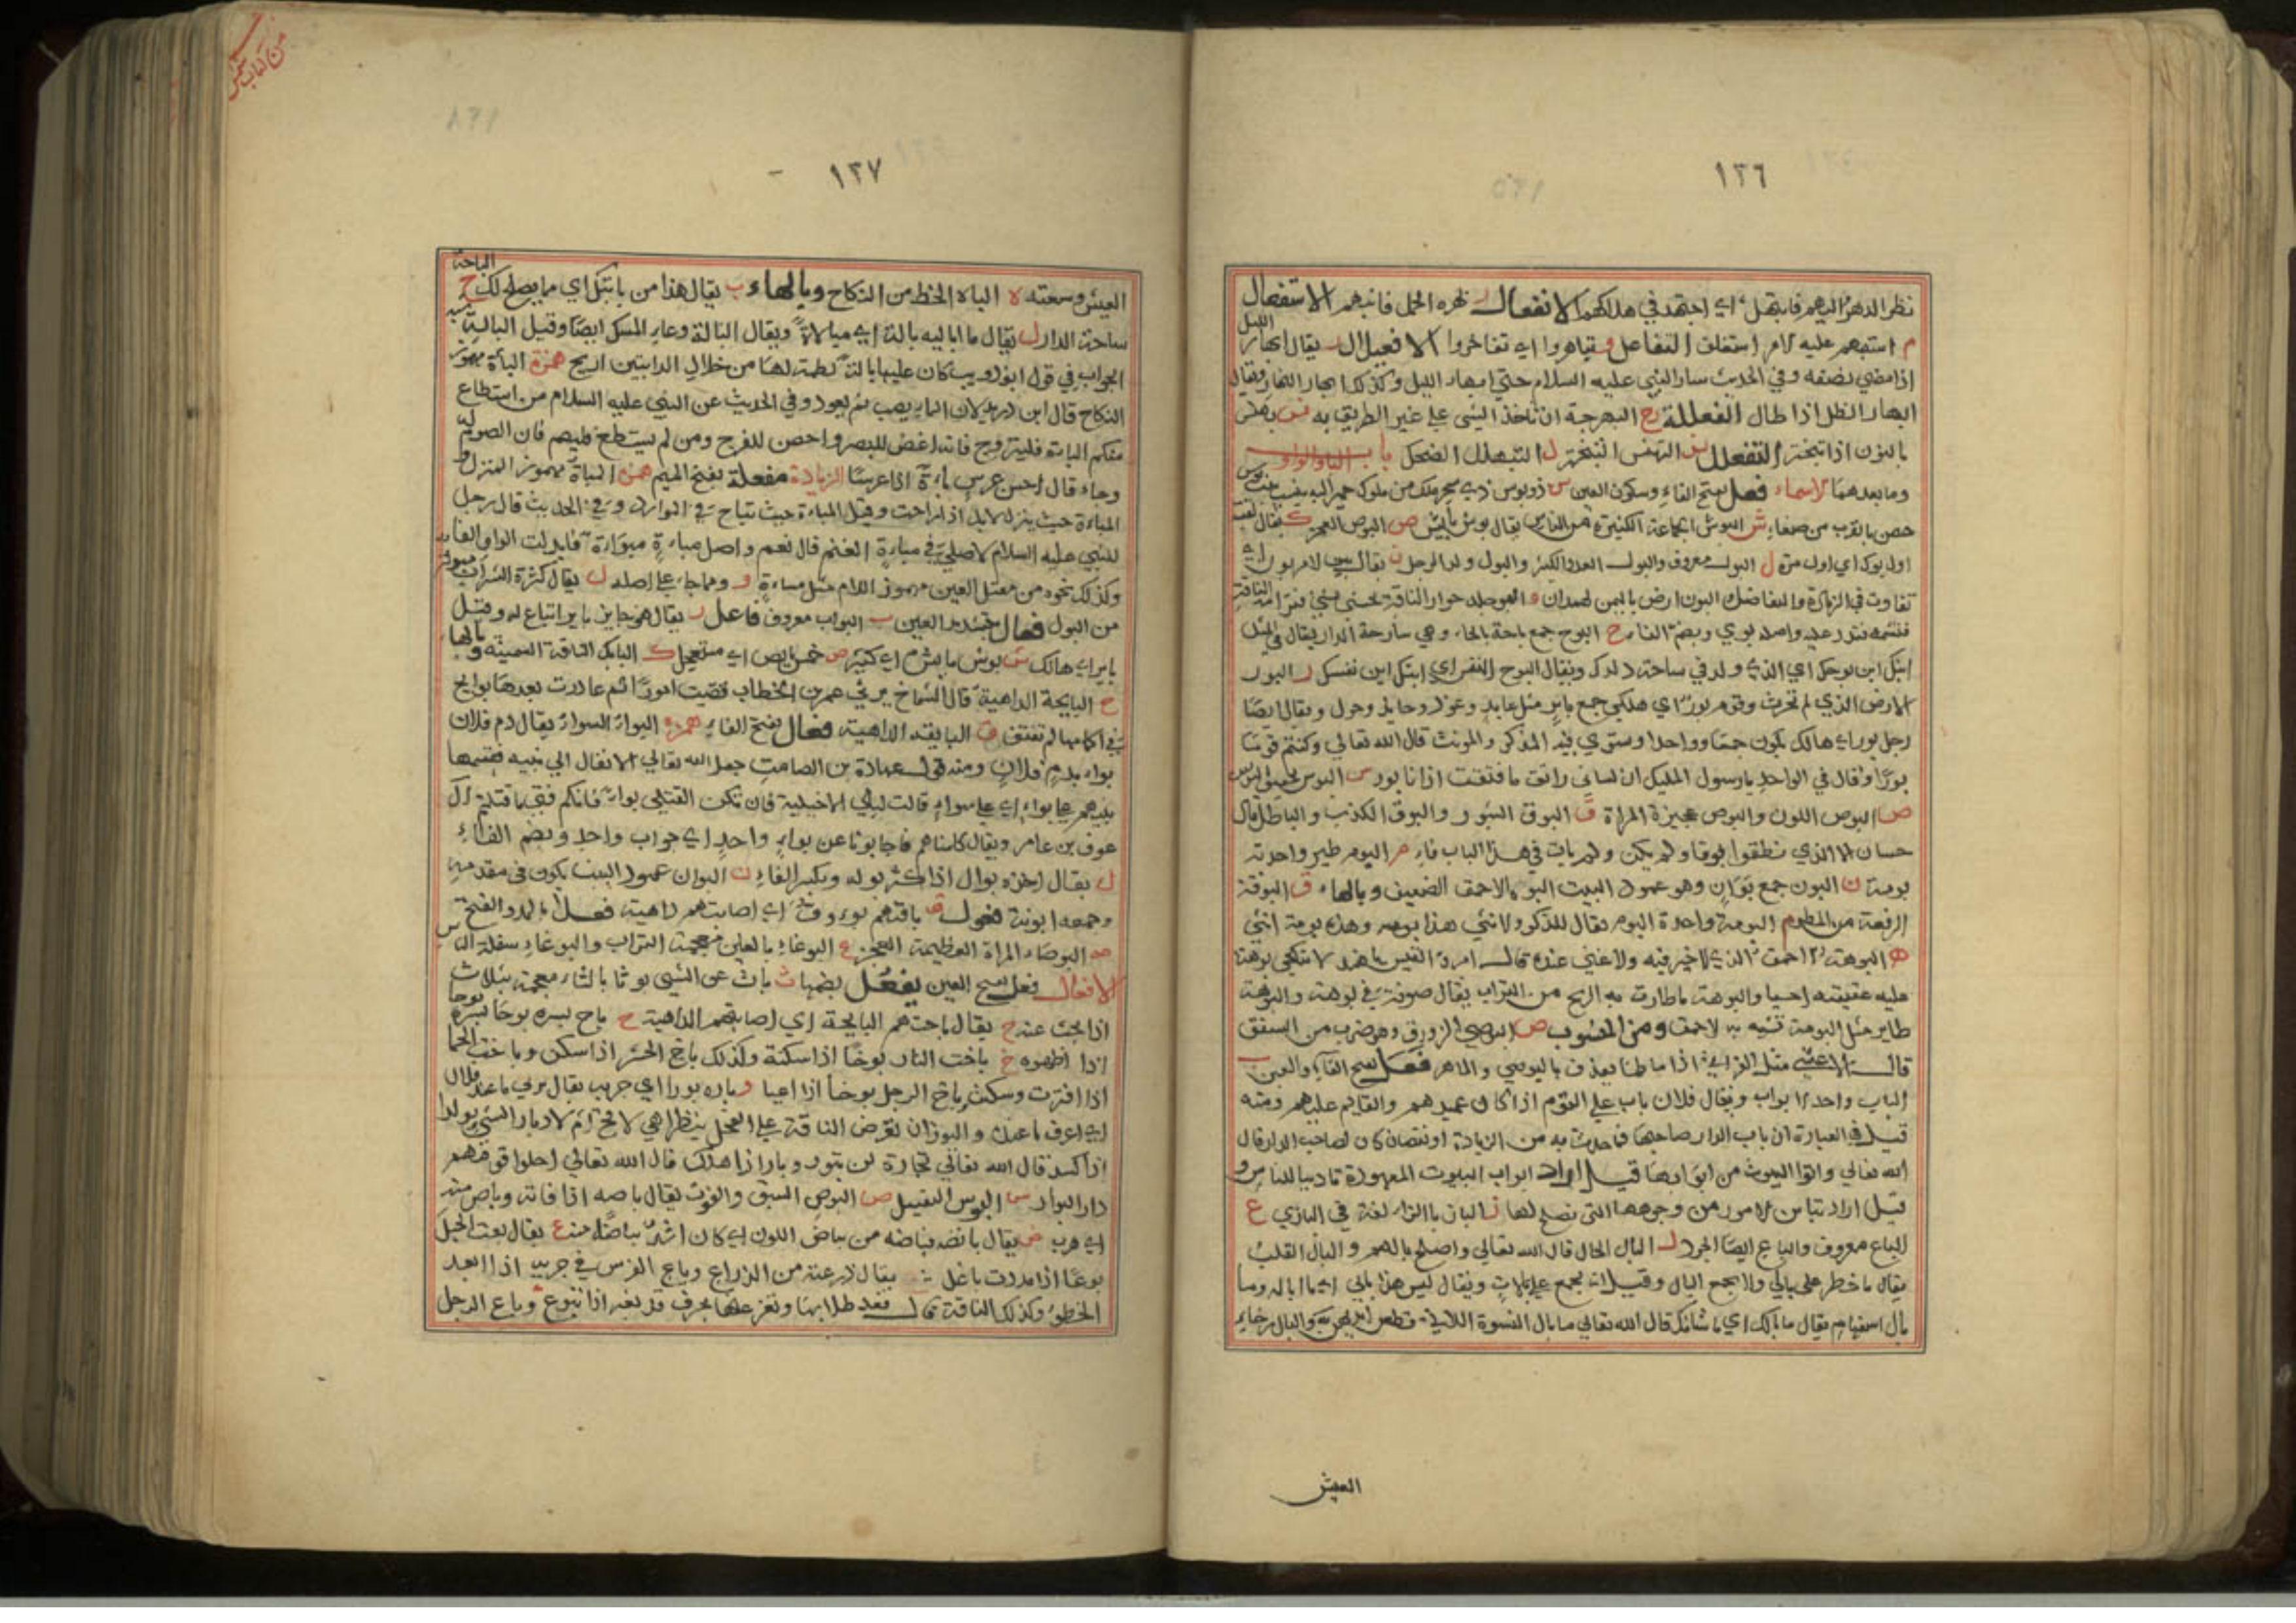 ١٢٦
نظر الدهر اليهم فابتهل اي اجتهد في هلاكهم الانفعال ر بهره الحمل فانبهر الاستفعال
م استبهم عليه الامر استغلق التفاعل و تباهروا اي تفاخروا الافعيلال ر يقال ابهار الليل
اذا مضى نصفه وفي الحديث سار النبي عليه السلام حتى ابهار الليل وكذلك ابهار النهار ويقال
ابهار الظل اذا طال الفعللة ج البهرجة ان تاخذ الشي على غير الطريق به
بالنون اذا تبختر التفعلل س التبهنس التبختر ل التبهلل الضحك باب الباء والواو
وما بعدهما الاسماء فعل بفتح الفاء وسكون العين س ذو بوس ذي سحر ملك من ملوك حمير اليه ينسب بيت بوس
حصن بالقرب من صنعاء ش البوش الجماعة الكثيرة من الناس يقال بوش بائش ص البوص العجز ك يقال لقيته
اول بوك اي اول مرة ل البول معروف والبول العدد الكثير والبول ولد الرجل ن يقال بين الامرين بون اي
تفاوت في الزيادة والتفاضل والبون ارض باليمن لهمدان و البو جلد حوار الناقة يحشى فترامه الناقة
فتشمه فتدر عليه واصله بوي وبضم الفاء ح البوح جمع باحة بالحاء وهي ساحة الدار يقال في المثل
ابنك ابن بوحك اي الذي ولد في ساحة دارك ويقال البوح النفس اي ابنك ابن نفسك ر البور
الارض الذي لم تحرث وقوم بور اي هلكى جمع باير مثل عايد وعوذ وحايل وحول ويقال ايضا
رجل بور اي هالك يكون جمعا وواحدا وستوي فيه المذكر والمونث قال الله تعالى وكنتم قوما
بورا وقال في الواحد يا رسول المليك ان لساني راتق ما فتقت اذ انا بور س البوس
ص البوص اللون والبوص عجيزة المراة ق البوق الشبور والبوق الكذب والباطل قال
حسان الا الذي نطقوا بوقا ولم يكن ولم يات في هذا الباب فاء م البوم طير واحدته
بومة ن البون جمع بوان وهو عمود البيت البو الاحمق الضعيف وبالهاء ق البوقة
الرفعة من المطر م البومة واحدة البوم يقال للذكر والانثى هذا بومة وهذه بومة انثى
ه البوهة الاحمق الذي لا خير فيه ولا غنى عنده قال امرؤ القيس يا هند لا تنكحي بوهة
عليه عقيقته احسبا والبوهة ما طارت به الريح من التراب يقال صوفة في بوهة والبوهة
طاير مثل البومة تشبه به الاحمق ومن المنسوب ص البوصي الزورق وهو ضرب من السفن
قال الاعشى مثل الفراتي اذا ما طما يقذف بالبوصي والماهر فعل بفتح الفاء والعين ب
الباب واحد الابواب ويقال فلان باب على القوم اذا كان عميدهم والقايم عليهم ومنه
قيل في العبارة ان باب الدار صاحبها فما حدث به من الزيادة او نقصان كان لصاحب الدار قال
الله تعالى واتوا البيوت من ابوابها قيل اراد ابواب البيوت المعهودة تاديبا للناس و
قيل اراد تباين الامور من وجوهها التي تصلح لها ز الباز بالزاء لغة في البازي ع
الباع معروف والباع ايضا الجود ل البال الحال قال الله تعالى واصلح بالهم والبال القلب
يقال ما خطر على بالي ولا يجمع البال وقيل انه يجمع على بالات ويقال ليس هذا بالي اي مما اباليه وما
بال استفهام يقال ما بالك اي ما شانك قال الله تعالى ما بال النسوة اللاتي قطعن ايديهن والبال رخاء
العيش
١٢٧
من كتاب شمس
العيش وسعته ه الباه الحظ من النكاح وبالهاء ب يقال هذا من بابتك اي مما يصلح لك ح الباحة
ساحة الدار ل يقال ما اباليه بالة اي مبالاة ويقال البالة وعاء المسك ايضا وقيل البالة
الجراب في قول ابي ذويب كان عليها بالة لطمية لها من خلال الدايتين اريج همزة الباءة مهموز
النكاح قال ابن دريد لان الماء يصب ثم يعود وفي الحديث عن النبي عليه السلام من استطاع
منكم الباءة فليتزوج فانه اغض للبصر واحصن للفرج ومن لم يستطع فليصم فان الصوم له
وجاء قال احسن عرس باءة اذا عرسا الزيادة مفعلة بفتح الميم همزة المباءة مهموز المنزل و
المباءة حيث ينزل الابل اذا راحت وقيل المباءة حيث تناخ في الموارد وفي الحديث قال رجل
للنبي عليه السلام اصلي في مباءة الغنم قال نعم واصل مباءة مبواة فابدلت الواو الفا
وكذلك نحوه من معتل العين مهموز اللام مثل مساءة و ومما جاء على اصله ل يقال كثرة الشراب مبولة
من البول فعال بتشديد العين ب البواب معروف فاعل ر يقال هو حاير باير اتباع له وقيل
باير اي هالك ش بوش بايش اي كثير ص خمس بايص اي مستعجل ك البايك الناقة السمينة وبالهاء
ج البايجة الداهية قال الشماخ يرثي عمر بن الخطاب قضيت امورا ثم غادرت بعدها بوايج
في اكمامها لم تفتق ق البايقة الداهية فعال بفتح الفاء همزة البواء السواء يقال دم فلان
بواء بدم فلان ومنه قول عبادة بن الصامت جعل الله تعالى الانفال الى نبيه فقسمها
بينهم على بواء اي على سواء قالت ليلى الاخيلية فان تكن القتلى بواء فانكم فتى ما قتلتم ال
عوف بن عامر ويقال كلمناهم فاجابونا عن بواء واحد اي جواب واحد وبضم الفاء
ل يقال اخذه بوال اذا كثر بوله وبكسر الفاء ن البوان عمود البيت يكون في مقدمه
وجمعه ابونة فعول ق باقتهم بووق اي اصابتهم داهية فعلاء بالمد والفتح
ص البوصاء المراة العظيمة العجز غ البوغاء بالغين معجمة التراب والبوغاء سفلة الناس
الافعال فعل بفتح العين يفعل بضمها ث باث عن الشي بوثا بالثاء معجمة بثلاث
اذا بحث عنه ج يقال باجتهم البايجة اي اصابتهم الداهية ح باح بسره بوحا
اذا اظهره خ باخت النار بوخا اذا سكنت وكذلك باخ الحر اذا سكن وباخت الحما
اذا فترت وسكنت وباخ الرجل بوخا اذا اعيا ر باره بورا اي جربه يقال بر لي ما عند فلان
اي اعرف ما عنده والبور ان تعرض الناقة على الفحل ينظر اهي لاقح ام لا وبار الشي بوارا
اذا كسد قال الله تعالى تجارة لن تبور وبار اذا هلك قال الله تعالى احلوا قومهم
دار البوار س البوس التقبيل ص البوص السبق والفوت يقال باصه اذا فاته وباص منه
اي هرب ض يقال بايضه فباضه من بياض اللون اي كان اشد بياضا منه ع يقال بعت الحبل
بوعا اذا مددت باعك به يقال ذرعته من الذراع وباع الفرس في جريه اذا ابعد
الخطو وكذلك الناقة قال فعد طلابها وتعز عنها بحرف قد تغير اذا تبوع وباع الرجل